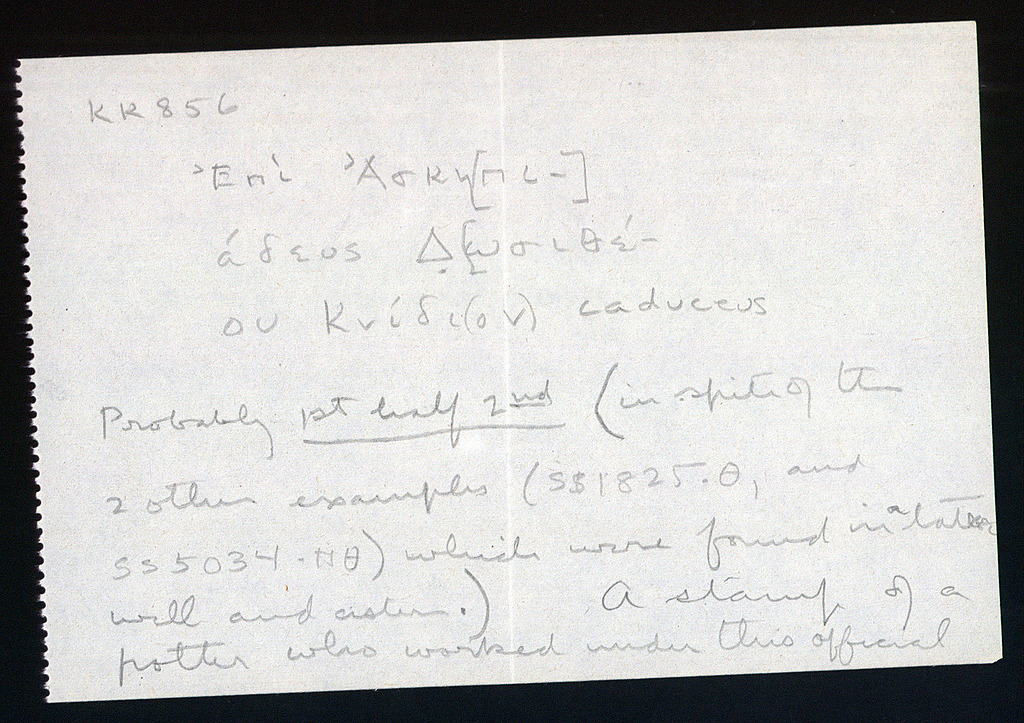 KK 856
Ἐπὶ Ἀσκη[πι-]
άδευς Δ̣[ωσιθέ-
ου Κνίδι(ον) caduceus
Probably 1st half 2nd (in spite of the
2 other examples (SS1825.Θ, and
SS5034.ΠΘ) which were found in a later
well and cistern.) A stamp of a
potter who worked under this official